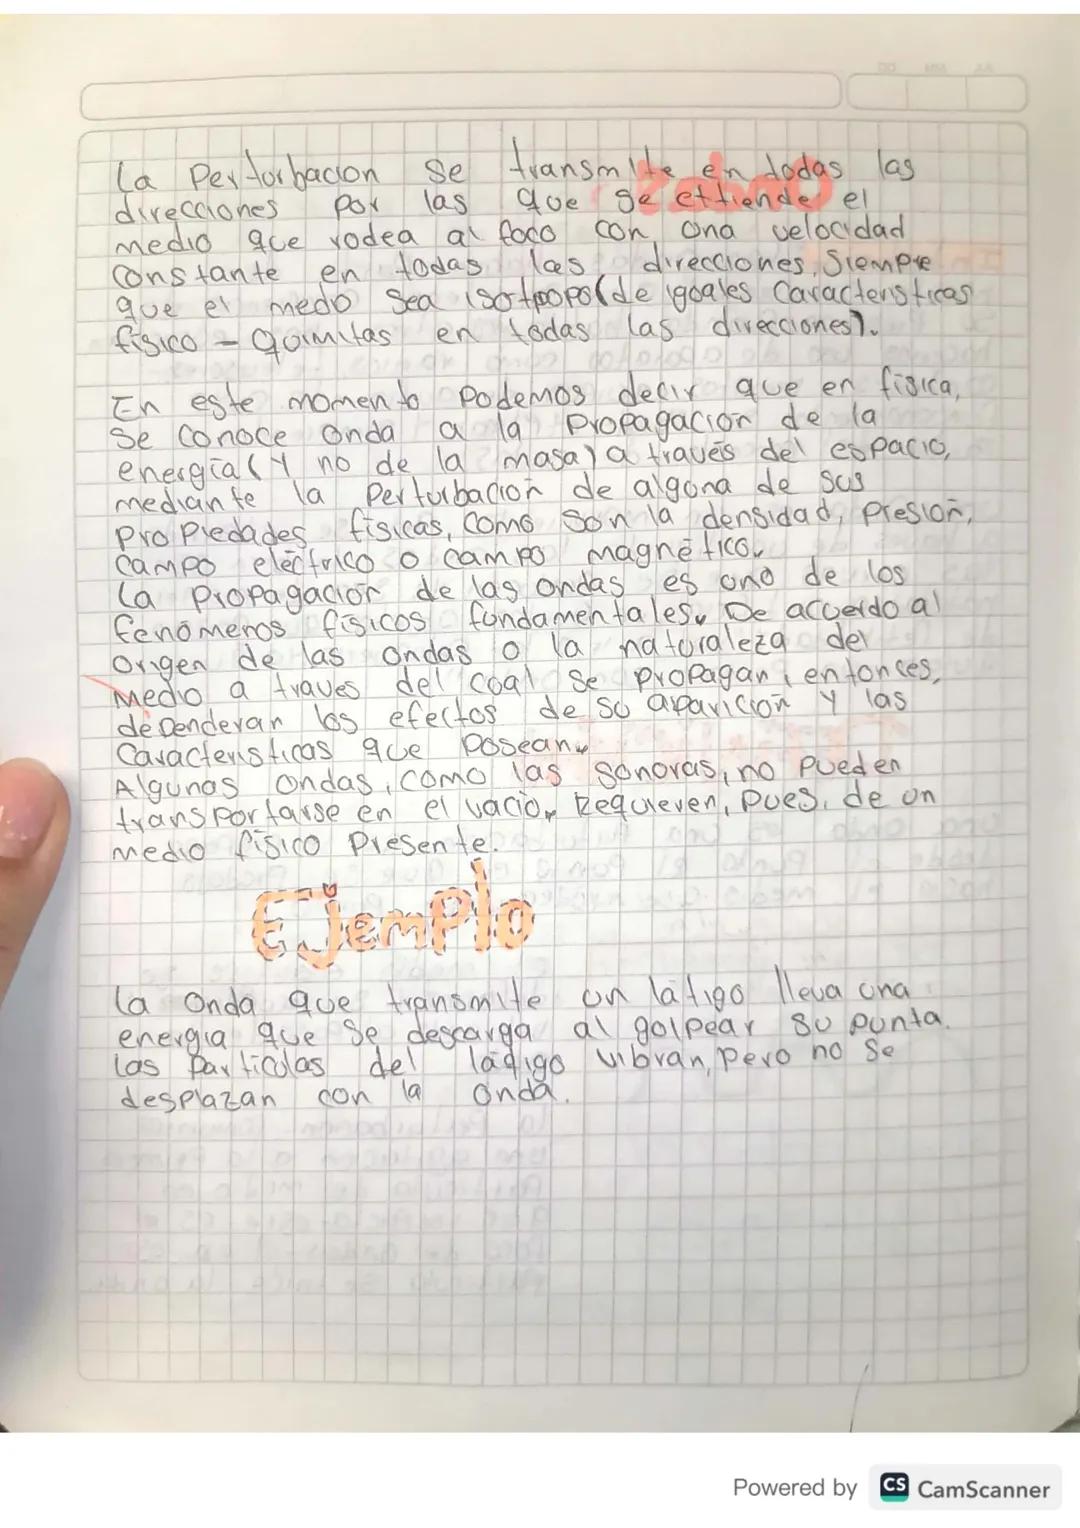 La Perturbacion se transmite en todas las
direcciones por las que se ettiende el
medio que rodea al foco con una velocidad
constante en todas las direcciones, Siempre
que el medio sea isotpopo(de iguales Caracteristicas
físico - quimitas en todas las direcciones).
En este momento Podemos decir que en física,
Se conoce onda a la Propagación de la
energía(Y no de la masa) a través del espacio,
mediante la Perturbación de alguna de sus
Propiedades físicas, como son la densidad, Presión,
Campo eléctrico o campo magnético.
La Propagación de las ondas es uno de los
fenómenos físicos fundamentales. De acuerdo al
Origen de las ondas o la naturaleza del
Medio a traves del cual se Propagan, entonces,
dependeran los efectos de su aparición Y las
Caracteristicas que Posean.
Algunas ondas, como las sonoras, no Pueden
transportarse en el vacio, Requieren, Pues, de un
medio físico Presente.
Ejemplo
La onda que transmite un látigo lleva una
energia que Se descarga al golpear su punta.
Las Particulas del ládigo vibran, pero no se
desplazan con la onda.
Powered by CS CamScanner